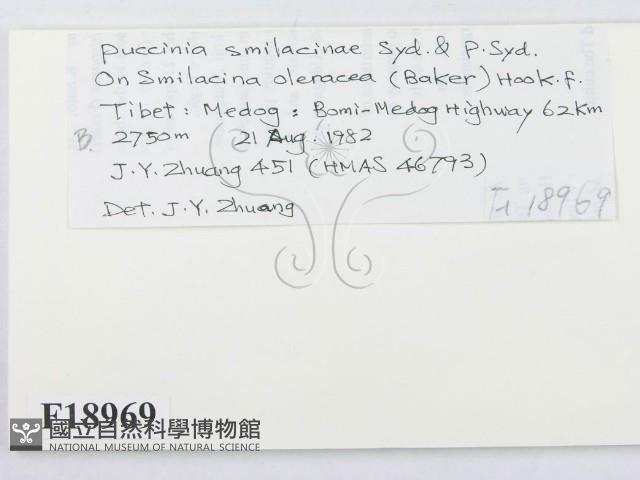 Puccinia smilacinae Syd. & P. Syd.
On Smilacina oleracea (Baker) Hook. f.
Tibet: Medog: Bomi-Medog Highway 62km
B. 2750m 21 Aug. 1982
J. Y. Zhuang 451 (HMAS 46793)
Det. J. Y. Zhuang
18969
F18969
國立自然科學博物館
NATIONAL MUSEUM OF NATURAL SCIENCE